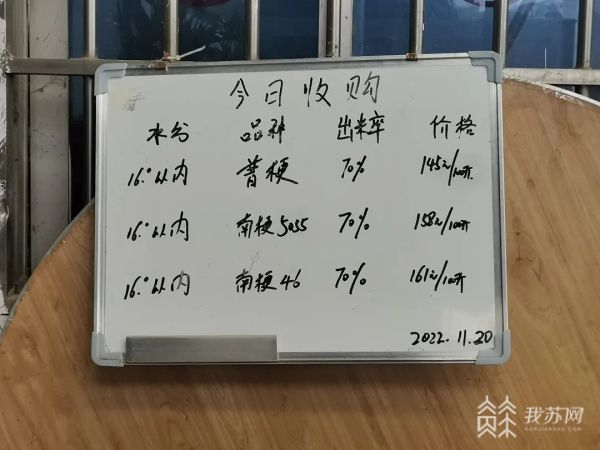 今日收购
水分 品种 出米率 价格
16.°以内 普梗 70% 145元/100斤
16.°以内 南梗5055 70% 158元/100斤
16.°以内 南梗46 70% 161元/100斤
2022.11.20
我苏网
OURJIANGSU.COM